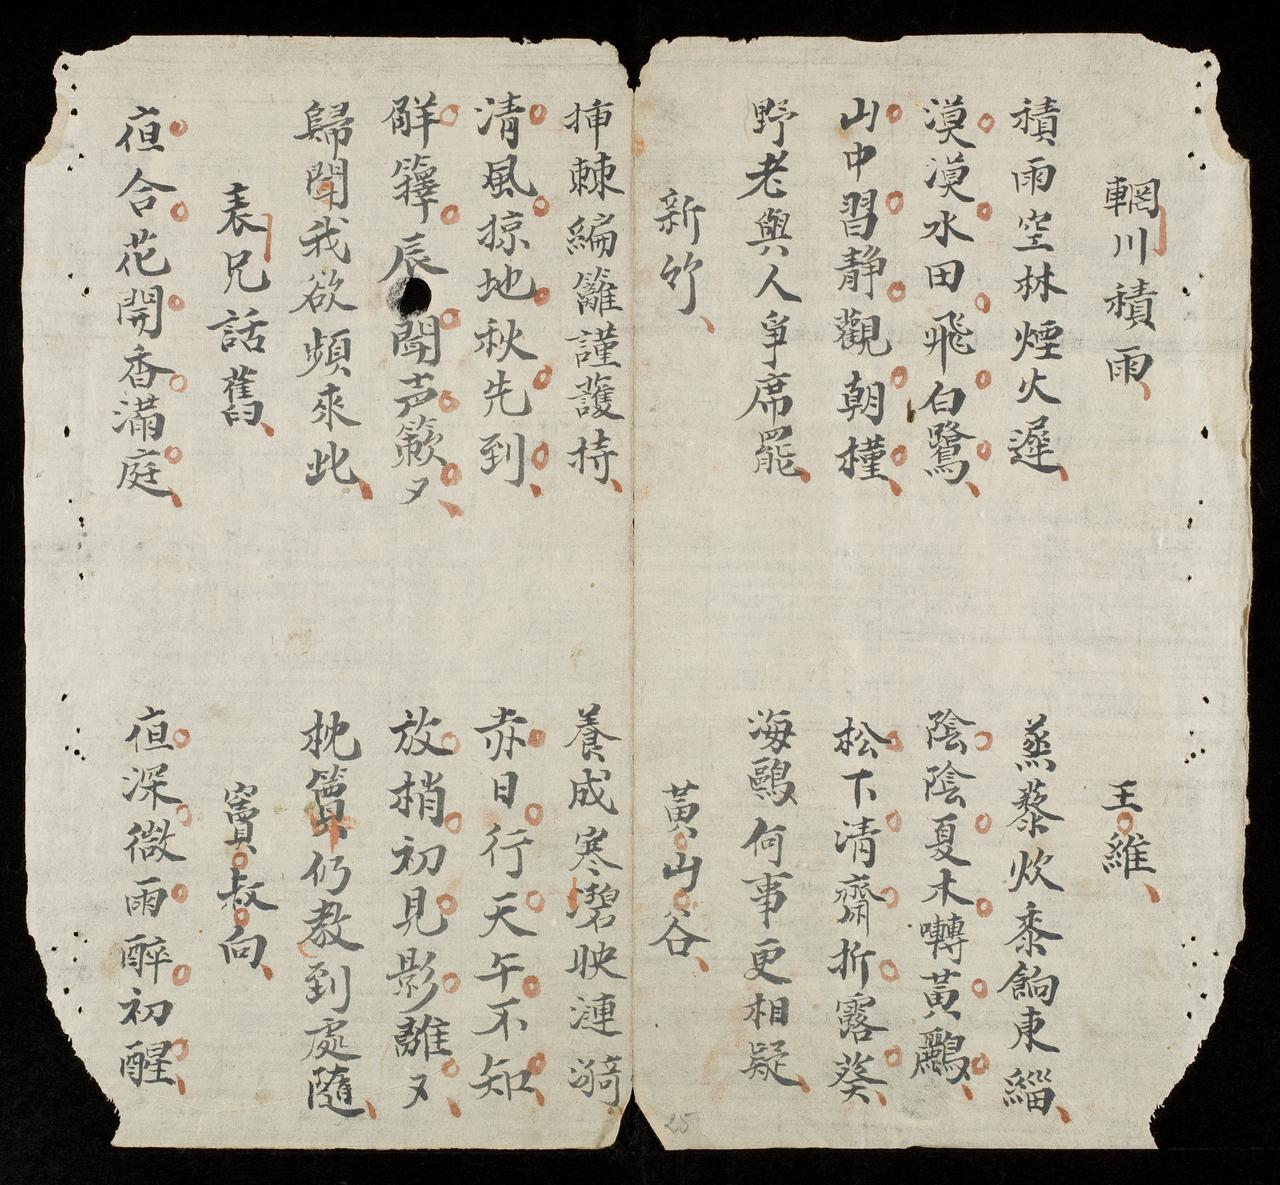 輞川積雨　王維
積雨空林煙火遲　蒸藜炊黍餉東緇
漠漠水田飛白鷺　陰陰夏木囀黃鸝
山中習靜觀朝槿　松下清齋折露葵
野老與人爭席罷　海鷗何事更相疑
新竹　黃山谷
挿棘編籬謹護持　養成寒碧映漣漪
清風掠地秋先到　赤日行天午不知
觧籜辰聞声簌〻　放梢初見影離〻
歸閒我欲頻來此　枕簟仍教到處隨
表兄話舊　竇叔向
夜合花開香滿庭　夜深微雨醉初醒
25